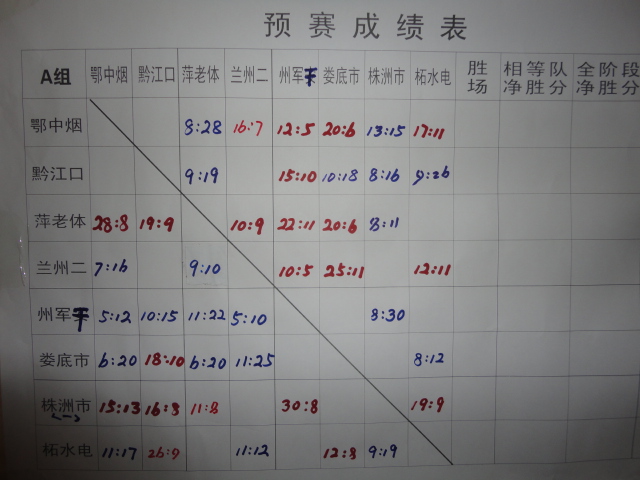 预赛成绩表
A组 鄂中烟 黔江口 萍老体 兰州二 州军干 娄底市 株洲市 柘水电 胜场 相等队净胜分 全阶段净胜分
鄂中烟 8:28 16:7 12:5 20:6 13:15 17:11
黔江口 9:19 15:10 10:18 8:16 9:26
萍老体 28:8 19:9 10:9 22:11 20:6 8:11
兰州二 7:16 9:10 10:5 25:11 12:11
州军干 5:12 10:15 11:22 5:10 8:30
娄底市 6:20 18:10 6:20 11:25 8:12
株洲市 15:13 16:8 11:8 30:8 19:9
柘水电 11:17 26:9 11:12 12:8 9:19